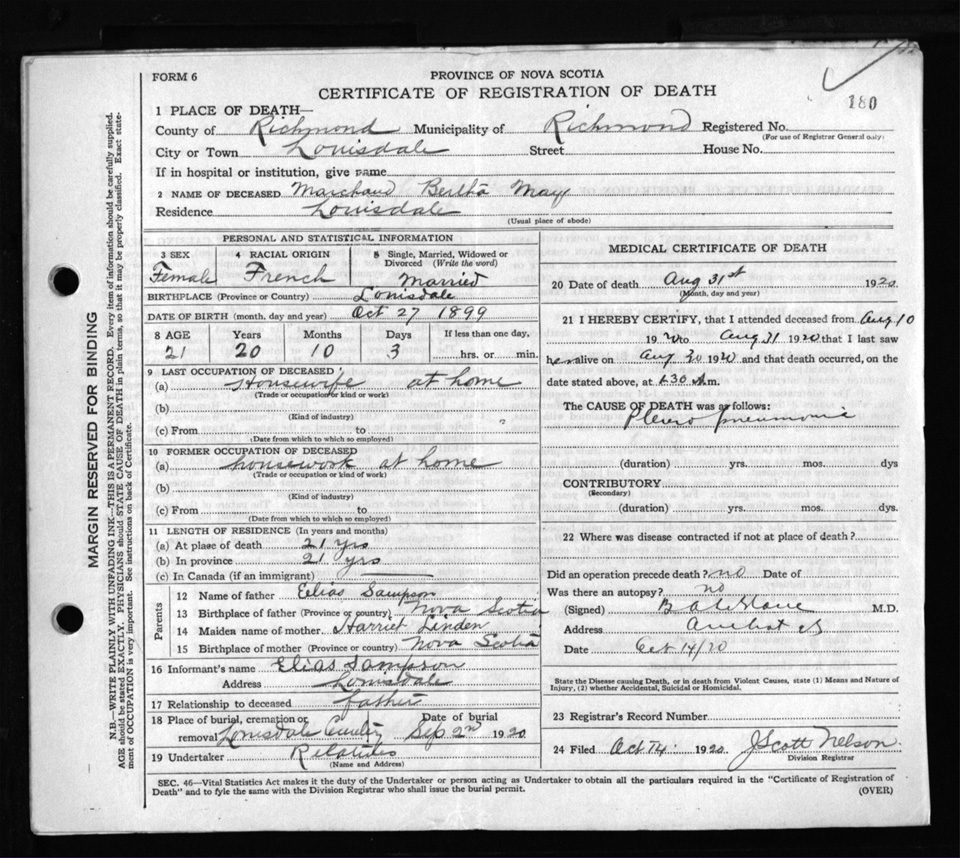 FORM 6
PROVINCE OF NOVA SCOTIA
CERTIFICATE OF REGISTRATION OF DEATH
180
1 PLACE OF DEATH—
County of Richmond Municipality of Richmond Registered No.
(For use of Registrar General only)
City or Town Louisdale Street House No.
If in hospital or institution, give name
2 NAME OF DECEASED Marchand Bertha May
Residence Louisdale
(Usual place of abode)
PERSONAL AND STATISTICAL INFORMATION
3 SEX Female
4 RACIAL ORIGIN French
5 Single, Married, Widowed or Divorced (Write the word) Married
BIRTHPLACE (Province or Country) Louisdale
DATE OF BIRTH (month, day and year) Oct 27 1899
8 AGE Years Months Days If less than one day,
21 20 10 3 hrs. or min.
9 LAST OCCUPATION OF DECEASED
(a) Housewife at home
(Trade or occupation or kind or work)
(b)
(Kind of industry)
(c) From to
(Date from which to which so employed)
10 FORMER OCCUPATION OF DECEASED
(a) housework at home
(Trade or occupation or kind of work)
(b)
(Kind of industry)
(c) From to
(Date from which to which so employed)
11 LENGTH OF RESIDENCE (In years and months)
(a) At place of death 21 yrs
(b) In province 21 yrs
(c) In Canada (if an immigrant)
Parents
12 Name of father Elias Sampson
13 Birthplace of father (Province or country) Nova Scotia
14 Maiden name of mother Harriet Linden
15 Birthplace of mother (Province or country) Nova Scotia
16 Informant's name Elias Sampson
Address Louisdale
17 Relationship to deceased father
18 Place of burial, cremation or removal Louisdale Date of burial Sep 2nd 1920
19 Undertaker Relatives
(Name and Address)
MEDICAL CERTIFICATE OF DEATH
20 Date of death Aug 31st 1920
(Month, day and year)
21 I HEREBY CERTIFY, that I attended deceased from Aug 10
1920 to Aug 31 1920 that I last saw
her alive on Aug 30 1920 and that death occurred, on the
date stated above, at 30 A m.
The CAUSE OF DEATH was as follows:
Pleuro pneumonia
(duration) yrs. mos. dys
CONTRIBUTORY
(Secondary)
(duration) yrs. mos. dys.
22 Where was disease contracted if not at place of death?
Did an operation precede death? no Date of
Was there an autopsy? no
(Signed) M.D.
Address
Date Oct 14/20
State the Disease causing Death, or in death from Violent Causes, state (1) Means and Nature of
Injury, (2) whether Accidental, Suicidal or Homicidal.
23 Registrar's Record Number
24 Filed Oct 14 1920 J Scott Nelson
Division Registrar
SEC. 46—Vital Statistics Act makes it the duty of the Undertaker or person acting as Undertaker to obtain all the particulars required in the "Certificate of Registration of
Death" and to fyle the same with the Division Registrar who shall issue the burial permit.
(OVER)
MARGIN RESERVED FOR BINDING
N.B.—WRITE PLAINLY WITH UNFADING INK—THIS IS A PERMANENT RECORD. Every item of information should be carefully supplied.
AGE should be stated EXACTLY. PHYSICIANS should STATE CAUSE OF DEATH in plain terms, so that it may be properly classified. Exact state-
ment of OCCUPATION is very important. See instructions on back of Certificate.